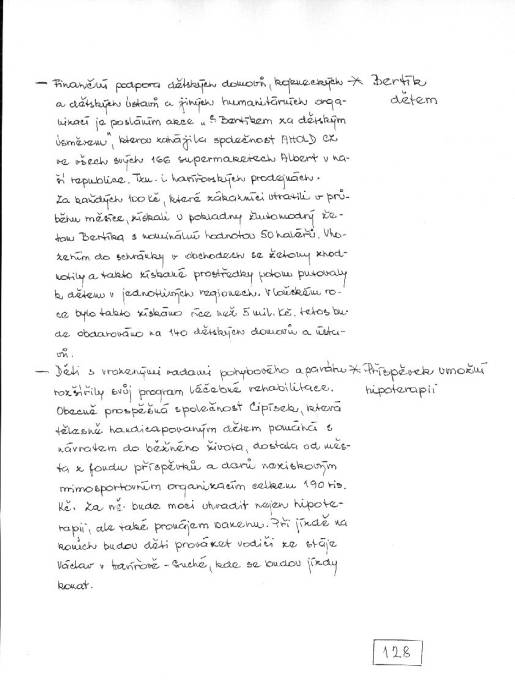 - Finanční podpora dětských domovů, kojeneckých * Bertík
a dětských ústavů a jiných humanitárních orga- dětem
nizací je posláním akce "S Bertíkem za dětským
úsměvem", kterou zahájila společnost AHOLD CZ
ve všech svých 166 supermarketech Albert v na-
ší republice. Tzn. i havířovských prodejnách.
Za každých 100 Kč, které zákazníci utratili v prů-
běhu měsíce, získali u pokladny žetonmodný že-
ton Bertíka s nominální hodnotou 50 haléřů. Vho-
zením do schránky v obchodech se žetony zhod-
notily a takto získané prostředky potom putovaly
k dětem v jednotlivých regionech. V loňském ro-
ce bylo takto získáno více než 5 mil. Kč. letos bu-
de obdarováno na 140 dětských domovů a ústa-
vů.
- Děti s vrozenými vadami pohybového aparátu * Příspěvek umožní
rozšířily svůj program léčebné rehabilitace. hipoterapii
Obecně prospěšná společnost Čipísek, která
tělesně handicapovaným dětem pomáhá s
návratem do běžného života, dostala od měs-
ta z fondu příspěvků a darů neziskovým
mimosportovním organizacím celkem 190 tis.
Kč. Za ně bude moci uhradit nejen hipote-
rapii, ale také pronájem bazénu. Při jízdě na
koních budou děti provázet vodiči ze stáje
Václav v Havířově - Suché, kde se budou jízdy
konat.
128